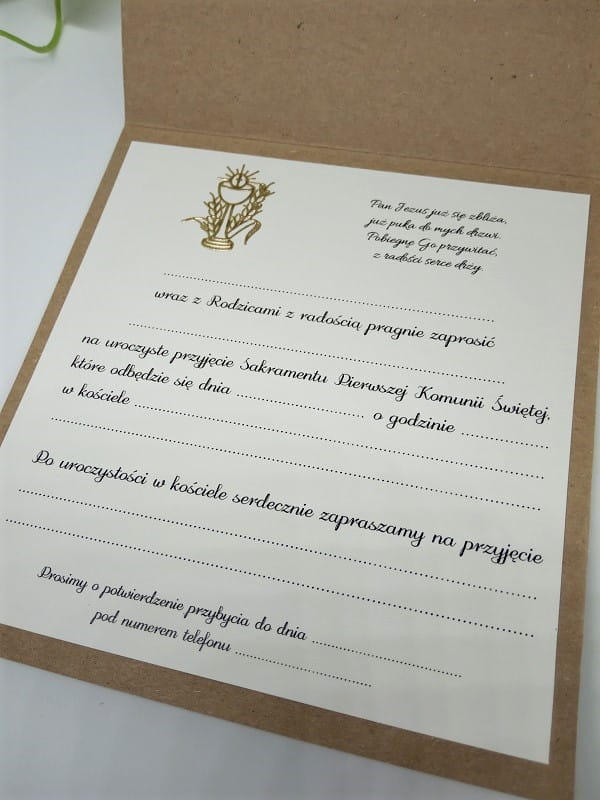 Pan Jezus już się zbliża,
już puka do mych drzwi.
Pobiegnę Go przywitać,
z radości serce drży.
........................................................................
wraz z Rodzicami z radością pragnie zaprosić
........................................................................
na uroczyste przyjęcie Sakramentu Pierwszej Komunii Świętej,
które odbędzie się dnia .............................. o godzinie ....................
w kościele ........................................................................
........................................................................
Po uroczystości w kościele serdecznie zapraszamy na przyjęcie
........................................................................
........................................................................
Prosimy o potwierdzenie przybycia do dnia ..............................
pod numerem telefonu ..............................